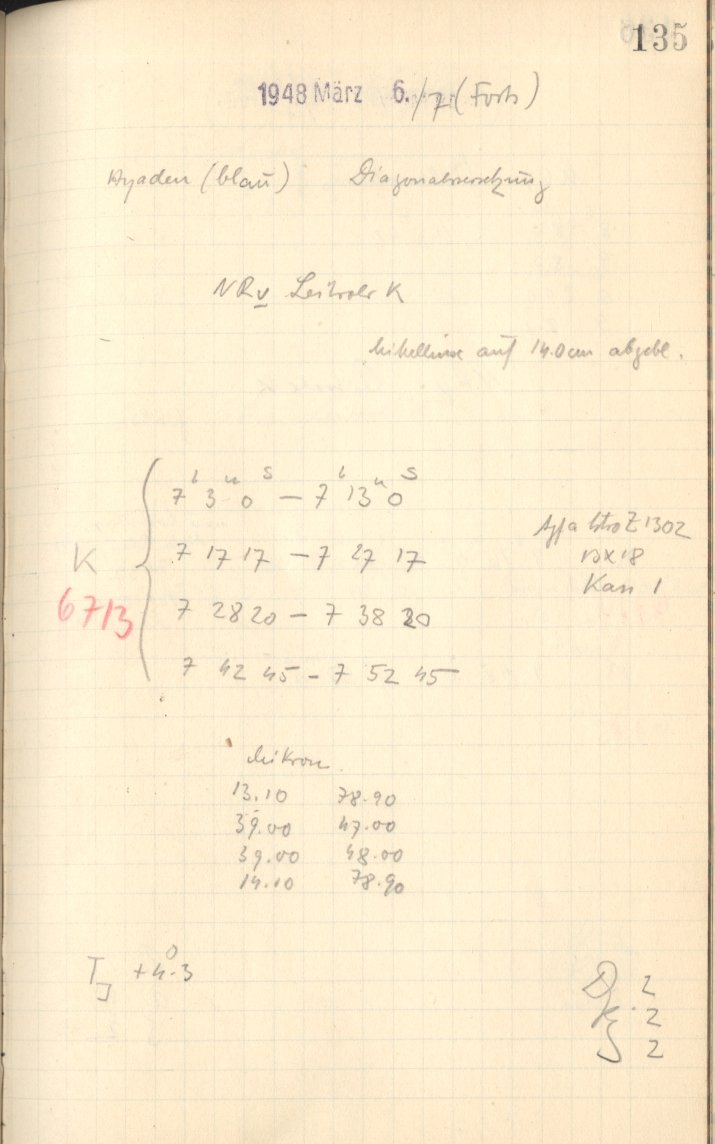 135
1948 März 6./7. (Forts)
Hyaden (blau) Diagonalversetzung
NRv Leitrohr K
auf 14.0cm abgebl.
7h 3m 0s – 7h 13m 0s
7 17 17 – 7 27 17
K
6713
7 28 20 – 7 38 20
7 42 45 – 7 52 45
Agfa Astro Z 1302
13x18
Kass 1
Mikrom
13.10 78.90
39.00 47.00
39.00 48.00
14.10 78.90
TJ +4°.3
D 2
R 2
S 2